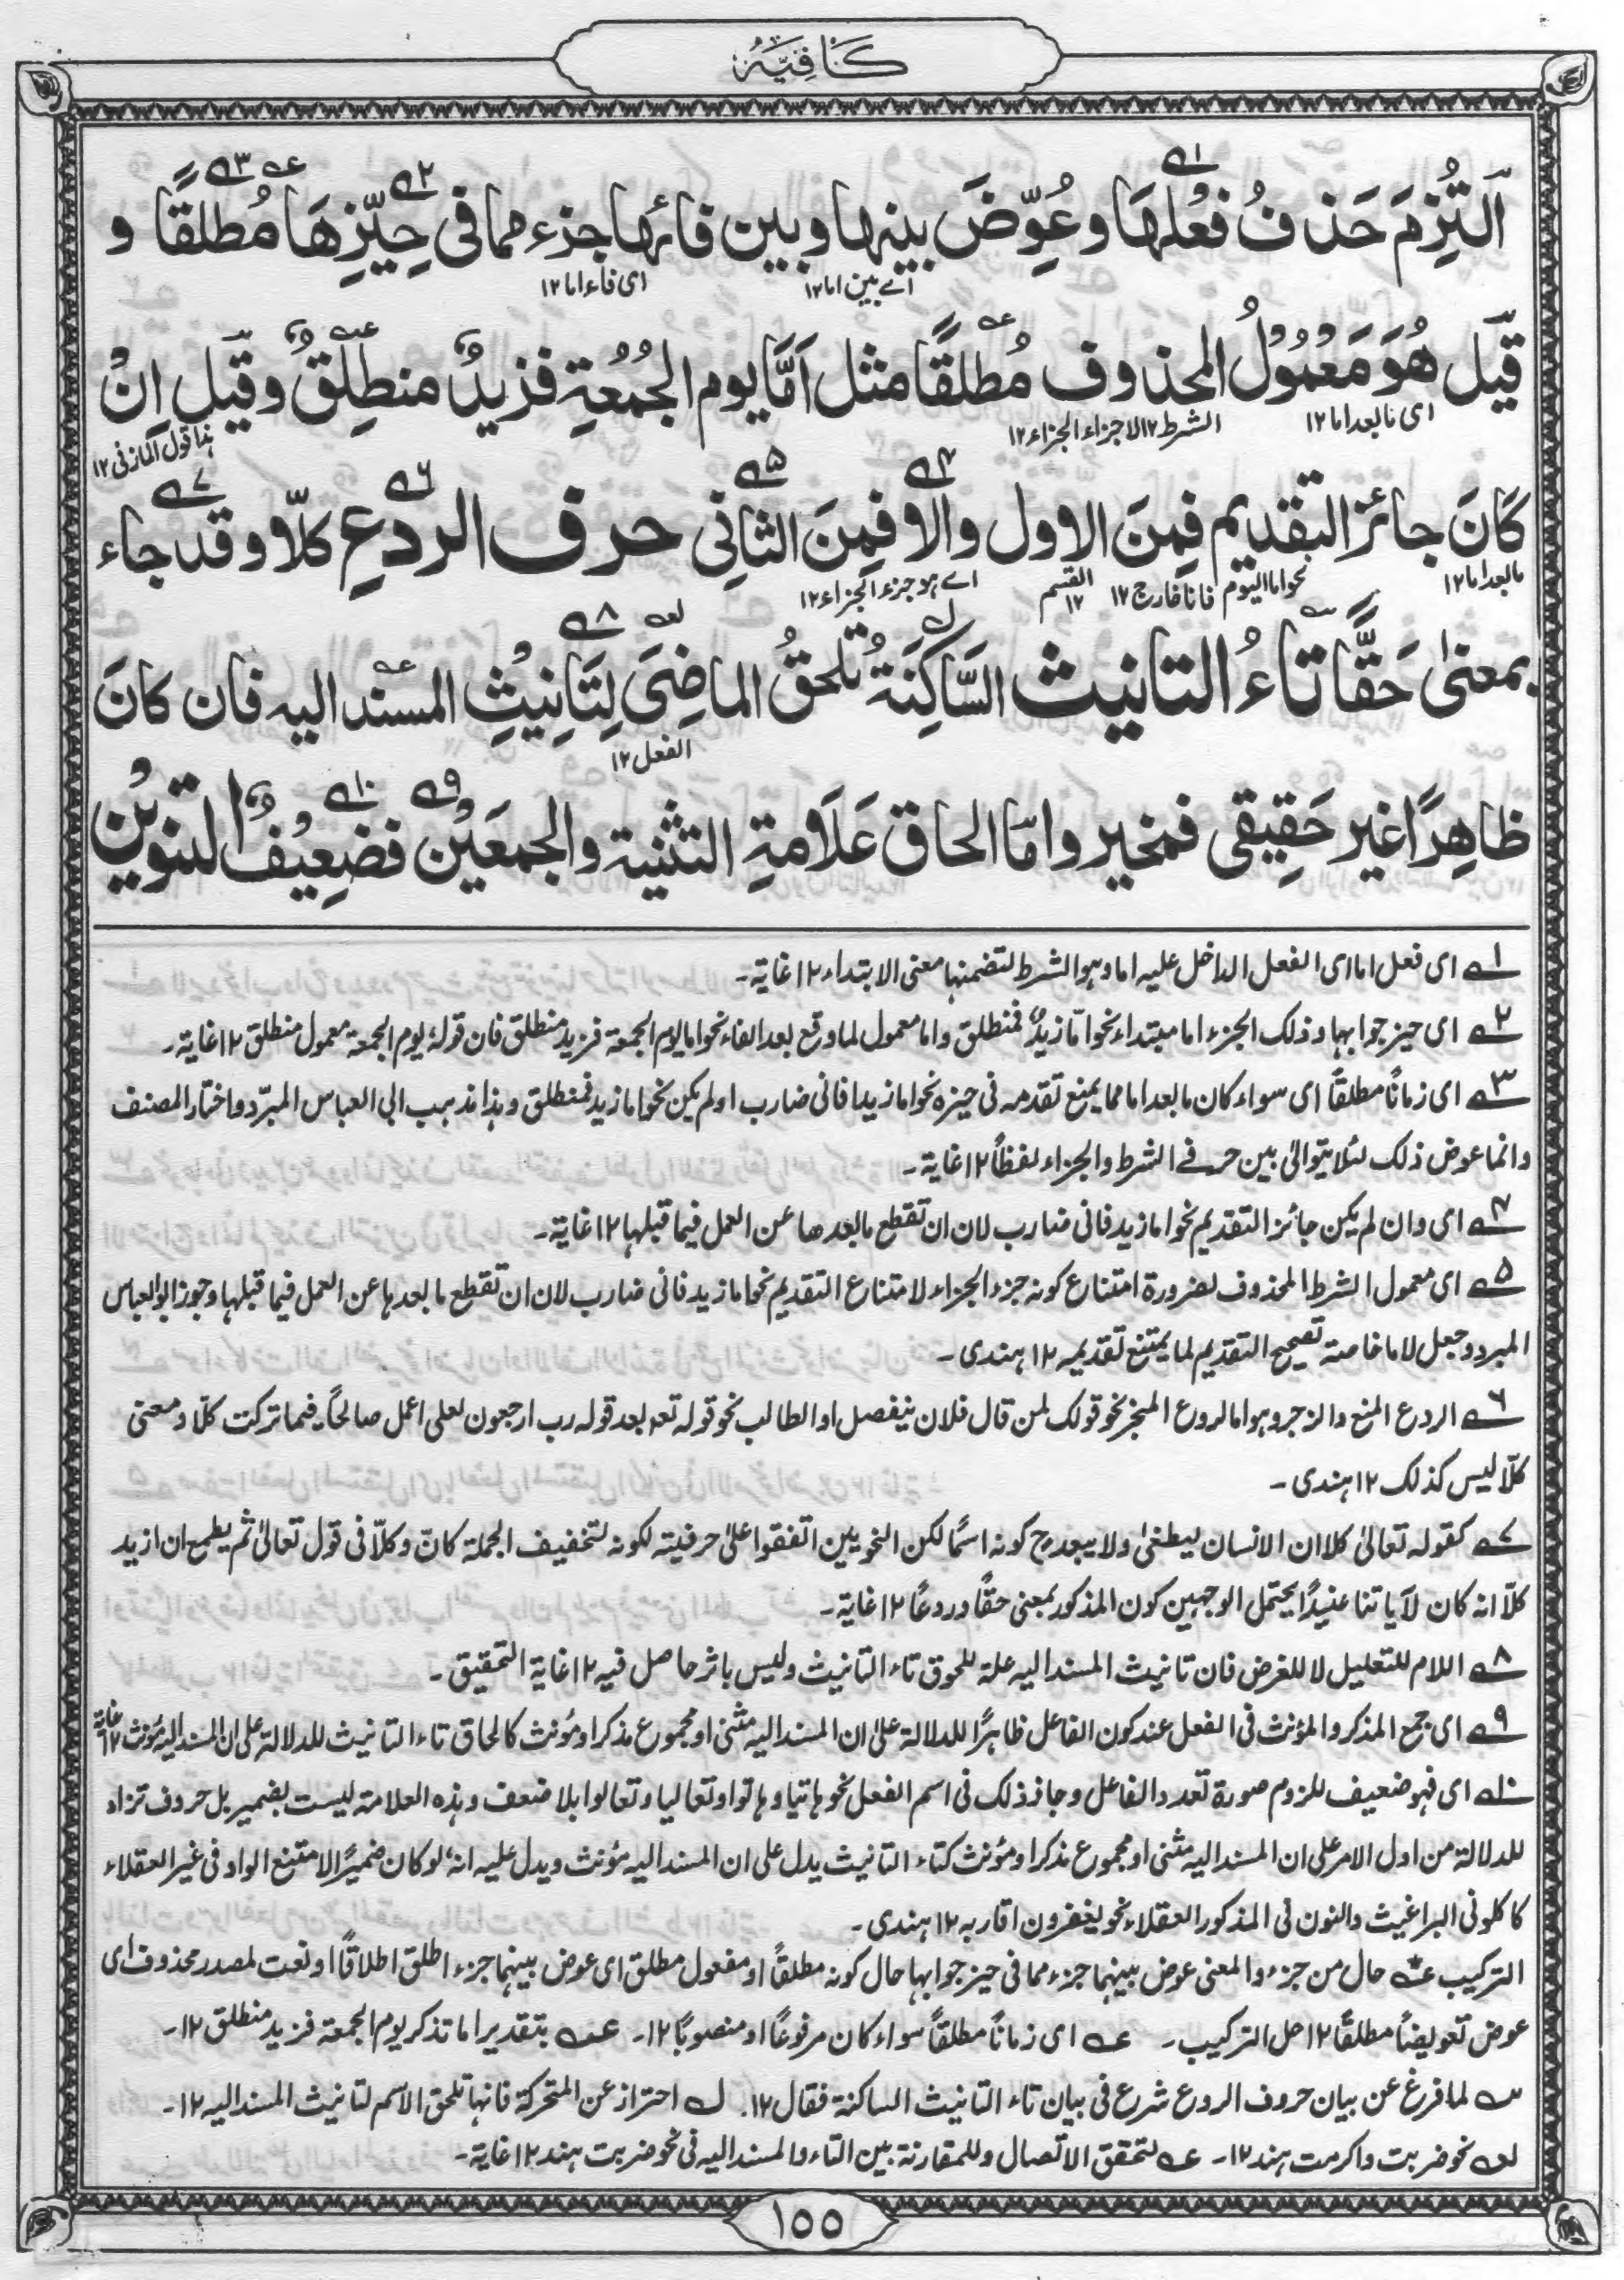 كَافِيَهُ
اَلتُزِمَ حَذفُ فعُلهَا وعُوِّضَ بينها وبين فائها جزء مما فى حِيّزِهَا مُطلقًا و
اے بين اما۱۲ اى فاء اما۱۲
قيل هُوَ مَعْمُوْلُ المحذوف مُطلقًا مثل اَمَّا يوم الجُمُعةِ فزيدٌ منطلِقٌ وقيل اِنْ
اى ما بعد اما۱۲ الشرط۱۲ لا جزاء الجزاء۱۲ هذا قول المازنى۱۲
كَانَ جائز التقديم فمِنَ الاول والا فمِنَ الثانِى حرف الردعِ كلّا وقد جاء
ما بعد اما۱۲ نحو اما اليوم فانا خارج۱۲ القسم۱۲ اے لا جزء الجزاء۱۲
بمعنىٰ حَقًّا تاءُ التانيث السَّاكِنَةُ تلحقُ الماضِىَ لِتَانِيْثِ المسند اليه فان كانَ
الفعل۱۲
ظاهِرًا غير حَقِيقى فمخير وامّا الحاق عَلَامةِ التثنية والجمعَيْن فضَعِيْفٌ التنوِيْن
۱ اى فعل اما اى الفعل الداخل عليه اما وهو الشرط لتضمنها معنى الابتداء۱۲ غاية۔
۲ اى حيز جوابها وذلك الجزء اما مبتداء نحو امّا زيدٌ فمنطلق واما معمول لما وقع بعد الفاء نحو اما يوم الجمعة فزيد منطلق فان قولهٗ يوم الجمعة معمول منطلق۱۲ غاية۔
۳ اى زمانًا مطلقًا اى سواء كان ما بعد اما مما يمنع تقدمه فى حيزه نحو اما زيدا فانى ضارب او لم يكن نحو اما زيد فمنطلق وهذا مذهب ابى العباس المبرّد واختار المصنف
وانما عوض ذلك لئلا يتوالىٰ بين حرفے الشرط والجزاء لفظًا۱۲ غاية۔
۴ اى وان لم يكن جائز التقديم نحو اما زيد فانى ضارب لان ان تقطع ما بعدها عن العمل فيما قبلها۱۲ غاية۔
۵ اى معمول الشرط المحذوف لضرورة امتناع كونه جزء الجزاء لامتناع التقديم نحو اما زيد فانى ضارب لان ان تقطع ما بعدها عن العمل فيما قبلها وجوز ابو العباس
المبرد وجعل لاما خاصة تصحيح التقديم لما يمتنع تقديمه۱۲ هندى۔
۶ الردع المنع والزجر وهو اما لردع المخبر نحو قولك لمن قال فلان يبغضك او الطالب نحو قوله تعه بعد قوله رب ارجعون لعلى اعمل صالحًا۔ فيما تركت كلّا ومعنى
كلّا ليس كذلك۱۲ هندى۔
۷ كقوله تعالىٰ كلا ان الانسان ليطغىٰ ولا يبعد ح كونه اسمًا لكن النحويين اتفقوا علىٰ حرفيته لكونه لتخفيف الجملة كانّ وكلّا فى قول تعالىٰ ثم يطمع ان ازيد
كلّا انه كان لآياتنا عنيدًا يحتمل الوجهين كون المذكور بمعنى حقًا وردعًا۱۲ غاية۔
۸ اللام للتعليل لا للغرض فان تانيث المسند اليه علة للحوق تاء التانيث وليس باثر حاصل فيه۱۲ غاية التحقيق۔
۹ اى جمع المذكر والمؤنث فى الفعل عند كون الفاعل ظاهرًا للدلالة علىٰ ان المسند اليه مثنى او مجموع مذكر او مؤنث كالحاق تاء التانيث للدلالة على ان المسند اليه مؤنث۱۲ غاية
۱۰ اى فهو ضعيف للزوم صورة تعدد الفاعل وجاز ذلك فى اسم الفعل نحو هاتيا وهاتوا وتعاليا وتعالوا بلا ضعف وهذه العلامة ليست بضمير بل حروف تزاد
للدلالة من اول الامر على ان المسند اليه مثنى او مجموع مذكر او مؤنث كتاء التانيث يدل على ان المسند اليه مؤنث ويدل عليه انهٗ لو كان ضميرًا لامتنع الواو فى غير العقلاء
كاكلونى البراغيث والنون فى المذكور العقلاء نحو يغفرون اقاربه۱۲ هندى۔
التركيب عـه حال من جزء والمعنى عوض بينهما جزء مما فى حيز جوابها حال كونه مطلقًا او مفعول مطلق اى عوض بينهما جزء اطلق اطلاقًا او نعت لمصدر محذوف اى
عوض تعويضًا مطلقًا۱۲ حل التركيب۔ عـه اى زمانًا مطلقًا سواء كان مرفوعًا او منصوبًا۱۲۔ عـه بتقدير اما تذكر يوم الجمعة فزيد منطلق۱۲۔
سـه لما فرغ عن بيان حروف الردع شرع فى بيان تاء التانيث الساكنة فقال۱۲۔ لـه احتراز عن المتحركة فانها تلحق الاسم لتانيث المسند اليه۱۲۔
لعـه نحو ضربت واكرمت هند۱۲۔ عـه لتحقق الاتصال وللمقارنة بين التاء والمسند اليه فى نحو ضربت هند۱۲ غاية۔
۱۵۵